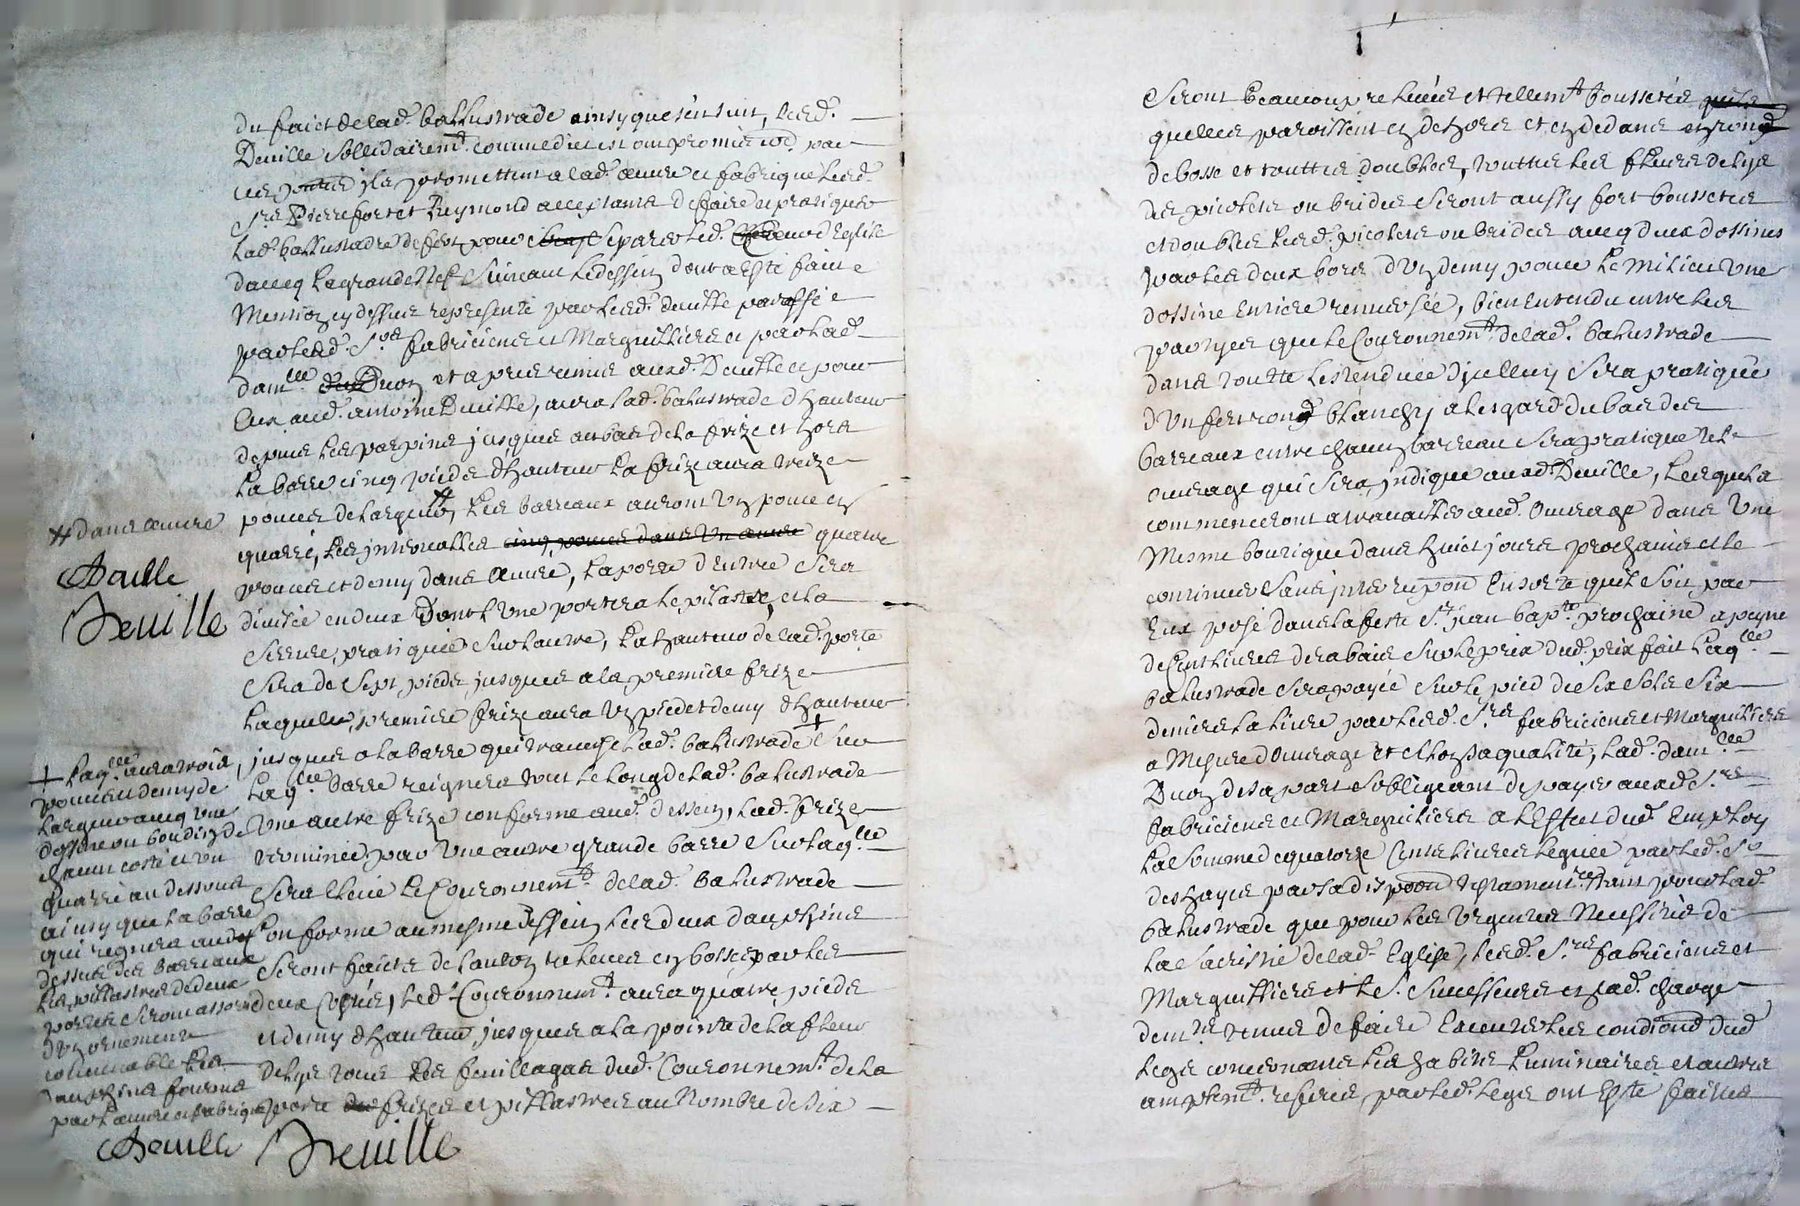 du faict de lad. ballustrade ainsy que sensuit, lesd.
Deuille sollidairemt. comme dict est ont promis et par
ces pntes ils promettent a lad. œuure et fabrique lesd.
Srs. Pierrefort et Reymond acceptants de faire et pratiquer
lad. ballustradre de fer pour separer led. cœur d'Eglise
daueq la grande Nef suiuant le dessein dont a esté faicte
Mention cy dessus representé par lesd. deuille paraffé
par lesd. Srs. fabriciens et Marguilliers et par lad.
damlle. Duon et apres remis ausd. Deuille et pour
Eux aud. antoine Deuille, aura lad. balustrade d'hauteur
depuis les parpins jusques au bas de la frize et hors
la barre cinq pieds d'hauteur la frize aura treize
pouces de largeur, les barreaux auront un pouce en
quarré, les jnternalles cinq pouces dans un œuure quatre
pouces et demy dans œuure, la porte d'entrée sera
diuisée en deux dont l'une portera le pilastre, et la
serrure pratiquée sur lautre, la hauteur de lad. porte
sera de sept pieds jusques a la premiere frize
laquelle premiere frize aura un pied et demy d'hauteur
jusques a la barre qui trauerse lad. balustrade + sur
laqlle. barre reignera tout le long de lad. balustrade
une autre frize conforme aud. dessein, lad. frize
terminée par une autre grande barre sur laqlle.
sera lleué le Couronnemt. de lad. balustrade
conforme au mesme dessein les deux dauphins
seront faicts de laiton releués en bosse par les
deux costés, led. Couronnemt. aura quatre pieds
et demy d'hauteur jusques a la pointe de la fleur
de lys tous les feuillages dud. Couronnemt. de la
porte des frizes et pillastres au Nombre de six
# dans œuure
Deuille
Deuille
+ laqlle. aura trois
pouces et demy de
largeur aueq une
dossine ou boudin de
chacun costé et un
quarré au dessous
ainsy que la barre
qui regnera au
dessus des barreaux
les pillastres de deux
portes seront assorties
d'un ornement
conuenable les
dauphins fournis
par l'œuure et fabrique
Deuille Deuille
Seront beaucoup releués et tellemt. boussetés
quelles paroissent en dehors et en dedans en rond
de bosse et touttes doubles, touttes les fleurs de lys
des picolets ou brides seront aussy fort boussetés
et doubles lesd. picolets ou brides aueq deux dossines
par les deux bors d'un demy pouce le milieu une
dossine entiere renuersée, bien entendu entre les
partyes que le Couronnemt. de lad. balustrade
dans toutte lestendue dicelluy sera pratiquée
d'un fer rond blanchy a lesgard du bas des
barreaux entre chacun barreau sera pratiqué tel
ouurage qui sera jndiqué ausd. Deuille, lesquels
commenceront a trauailler aud. Ouurage dans une
mesme boutique dans huict jours prochains et le
continuer sans jnterruption en sorte quil soit par
Eux posé dans la feste St. jean bapte. prochaine a peyne
de Cent liures de rabais sur le prix dud. prix fait laqlle.
balustrade sera payée sur le pied de six sols six
deniers la liure par lesd. Srs. fabriciens et Marguilliers
a Mesure d'Ouurage et selon sa qualité, lad. damlle.
Duon de sa part sobligeant de payer ausd. Srs.
fabriciens et Marguiliers a l'Effect dud. Employ
la somme de quatorze Cents liures leguée par led. Sr.
deshayes par sa dispoon testamentre. tant pour lad.
balustrade que pour les urgentes Necessités de
la sacristie de lad. Eglise, lesd. Srs. fabriciens et
Marguilliers et le Sr. successeurs en lad. charge
demrs. tenus de faire Executer les conditions dud.
legs concernants les habits luminaires et autres
amplemt. referés par led. legs ont esté faictes